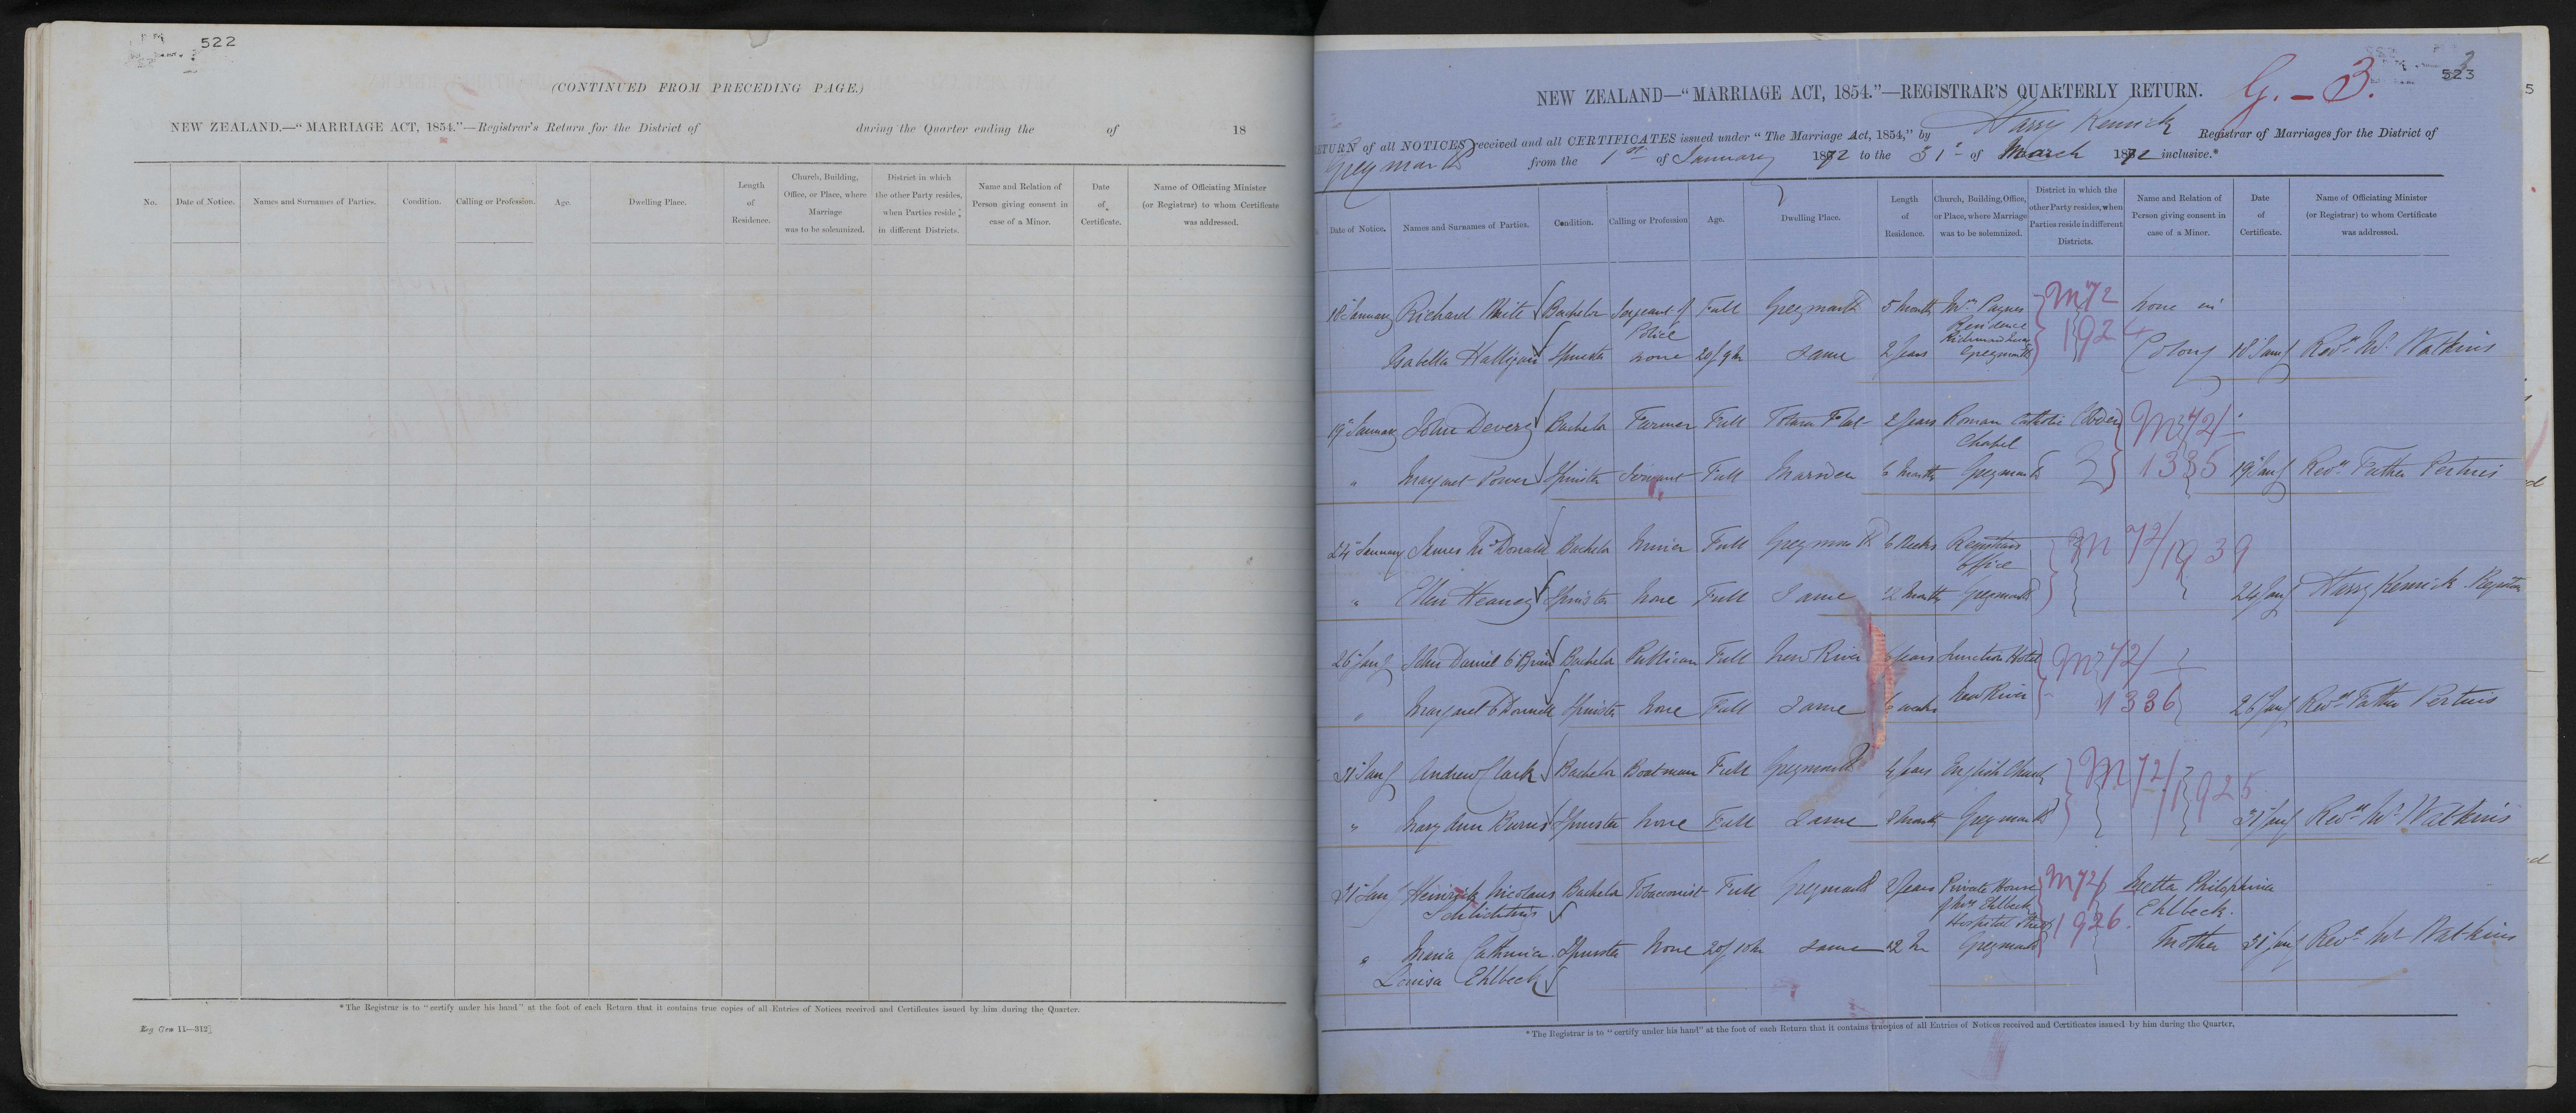 522
(CONTINUED FROM PRECEDING PAGE.)
NEW ZEALAND.—"MARRIAGE ACT, 1854."—Registrar's Return for the District of during the Quarter ending the of 18
No.
Date of Notice.
Names and Surnames of Parties.
Condition.
Calling or Profession.
Age.
Dwelling Place.
Length
of
Residence.
Church, Building,
Office, or Place, where
Marriage
was to be solemnized.
District in which
the other Party resides,
when Parties reside
in different Districts.
Name and Relation of
Person giving consent in
case of a Minor.
Date
of
Certificate.
Name of Officiating Minister
(or Registrar) to whom Certificate
was addressed.
*The Registrar is to "certify under his hand" at the foot of each Return that it contains true copies of all Entries of Notices received and Certificates issued by him during the Quarter.
Reg Gen 11—312]
523
G. - 3.
NEW ZEALAND—"MARRIAGE ACT, 1854."—REGISTRAR'S QUARTERLY RETURN.
RETURN of all NOTICES received and all CERTIFICATES issued under "The Marriage Act, 1854," by Harry Kenrick Registrar of Marriages for the District of
Greymouth from the 1st of January 1872 to the 31st of March 1872 inclusive.*
Date of Notice.
Names and Surnames of Parties.
Condition.
Calling or Profession
Age.
Dwelling Place.
Length
of
Residence.
Church, Building, Office,
or Place, where Marriage
was to be solemnized.
District in which the
other Party resides, when
Parties reside in different
Districts.
Name and Relation of
Person giving consent in
case of a Minor.
Date
of
Certificate.
Name of Officiating Minister
(or Registrar) to whom Certificate
was addressed.
18 January Richard White Bachelor Sergeant of Police Full Greymouth 5 Months Mrs Paynes Residence Greymouth M72 1924 none in
Isabella Halligan Spinster none Same 2 years Colony 18 Jany Revd W. Watkins
19 January John Devery Bachelor Farmer Full Totara Flat 2 years Roman Catholic Chapel M72/
" Margaret Power Spinster Servant Full Marsden 6 Months Greymouth 1335 19 Jany Revd Father Pertuis
24 January James McDonald Bachelor Miner Full Greymouth 6 Weeks Registrars Office M72/1939
" Ellen Heaney Spinster None Full Same 12 Months Greymouth 24 Jany Harry Kenrick Registrar
26 Jany John Daniel O'Brien Bachelor Publican Full New River 6 years Junction Hotel M72/
" Margaret O'Donnell Spinster None Full Same 6 weeks New River 1336 26 Jany Revd Father Pertuis
31 Jany Andrew Clark Bachelor Boatman Full Greymouth 4 years English Church M72/1925
" Mary Ann Burns Spinster None Full Same 8 Months Greymouth 31 Jany Revd W. Watkins
31 Jany Heinrich Nicolaus Schlichting Bachelor Tobacconist Full Greymouth 2 years Private House of Mrs Ehlbeck M72/ Metta Philophina Ehlbeck.
" Maria Catherina Spinster None Same Hospital Street Greymouth 1926. Mother 31 Jany Revd W. Watkins
Louisa Ehlbeck
*The Registrar is to "certify under his hand" at the foot of each Return that it contains true copies of all Entries of Notices received and Certificates issued by him during the Quarter.